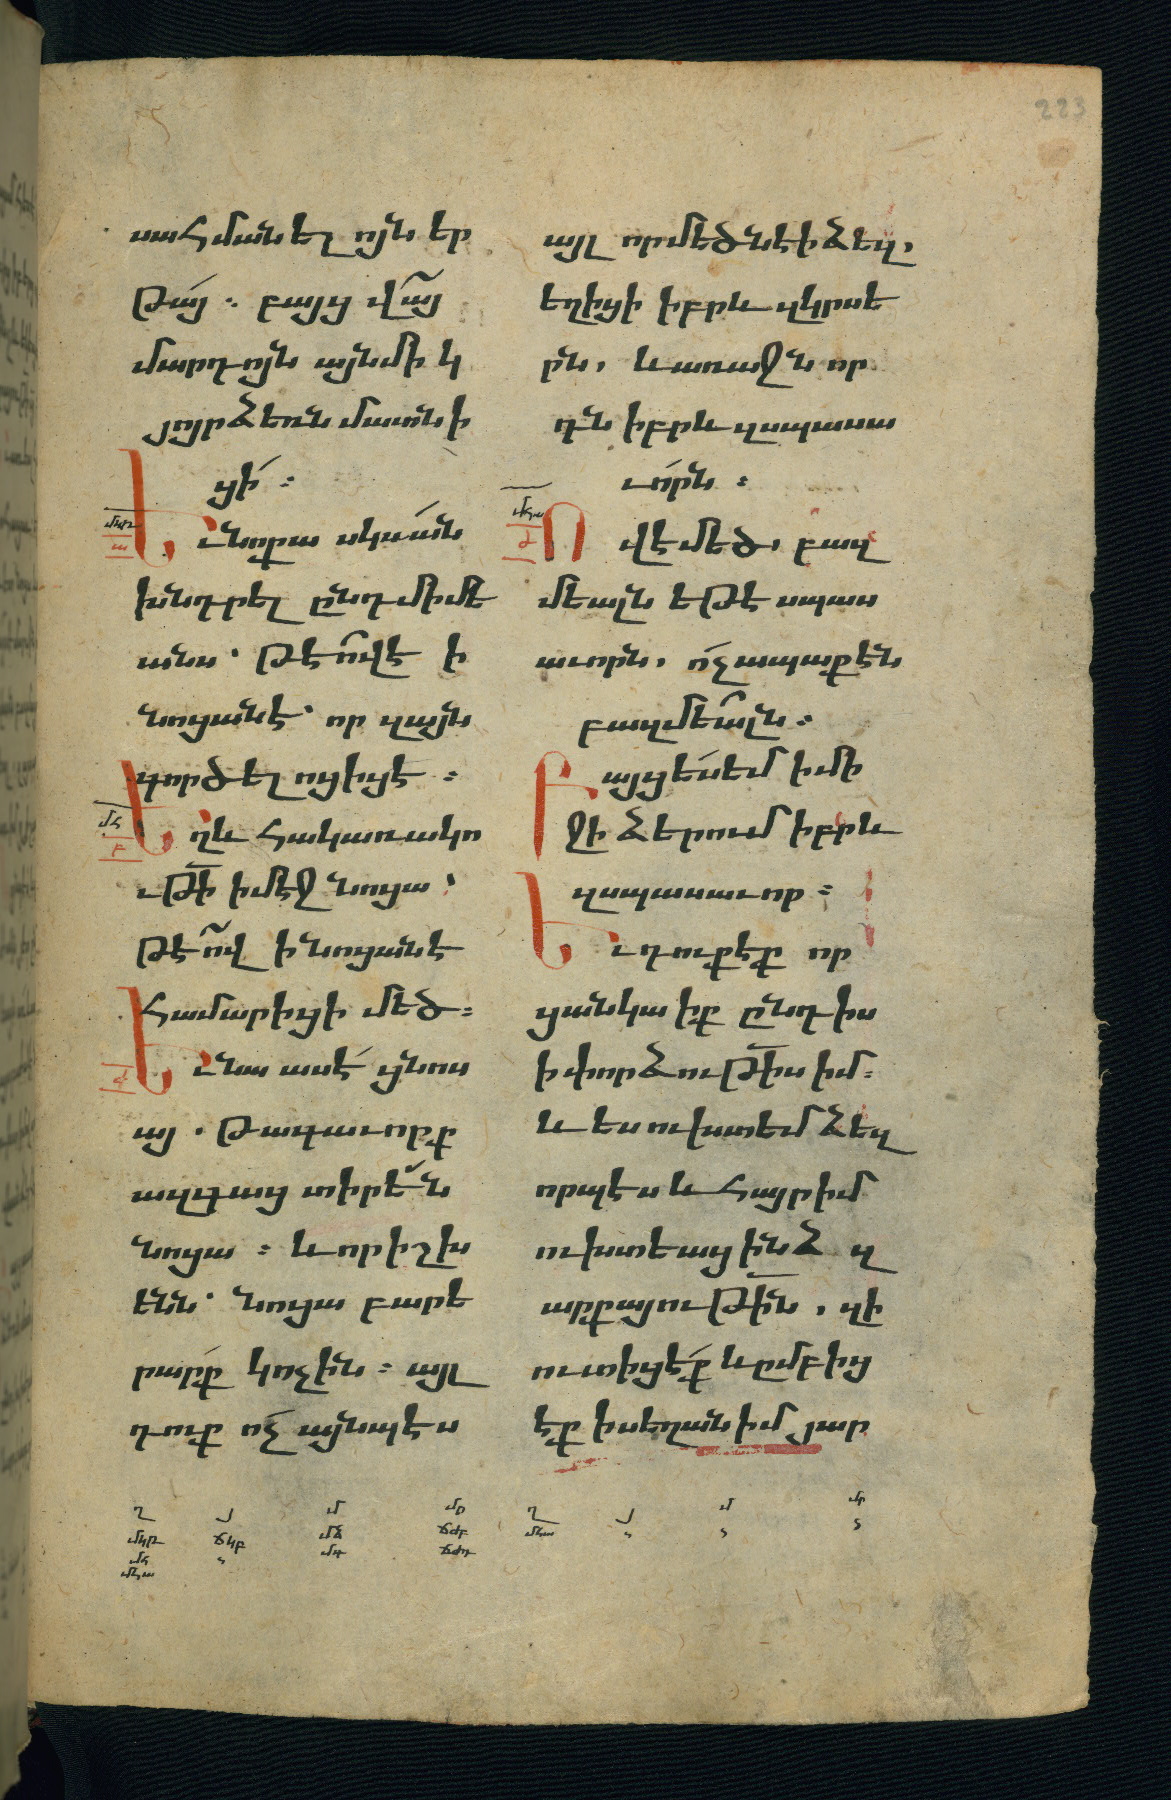 223
սահմանել ոյն եր
թայ ։ բայց վա՜յ
մարդոյն այնմիկ
յոյր ձեռն մատնի
ցի ։
Եւ նոքա սկսան
խնդրել ընդ միմե
անս՝ թե ո՞վ է ի
նոցանէ՝ որ զայն
գործել ոցիցէ ։
Եղև հակառակո
ւթի ի մէջ նոցա՝
թե ո՞վ ի նոցանէ
համարիցի մեծ ։
Եւ նա ասէ ցնոս
այ . թագաւորք
ազգաց տիրեն
նոցա ։ և որ իշխ
ենն՝ նոցա բարե
րարք կոչին ։ այլ
դուք ոչ այնպէս
այլ որ մեծն է ի ձեզ,
եղիցի իբրև զկրսե
րն, և առաջնոր
դն իբրև զսպասա
ւորն ։
Ո՞վ է մեծ, բազ
մեալն եթէ սպաս
աւորն, ոչ ապաքէն
բազմեալն ։
Բայց ես եմ ի մի
ջի ձերում իբրև
զսպասաւոր ։
Եւ դուք էք որ
ցանկա իք ընդ իս
ի փորձութիս իմ ։
և ես ուխտեմ ձեզ
որպէս և հայր իմ
ուխտեաց ինձ զ
արքայութին, զի
ուտիցէք և ըմբից
էք ի սեղան իմ յար